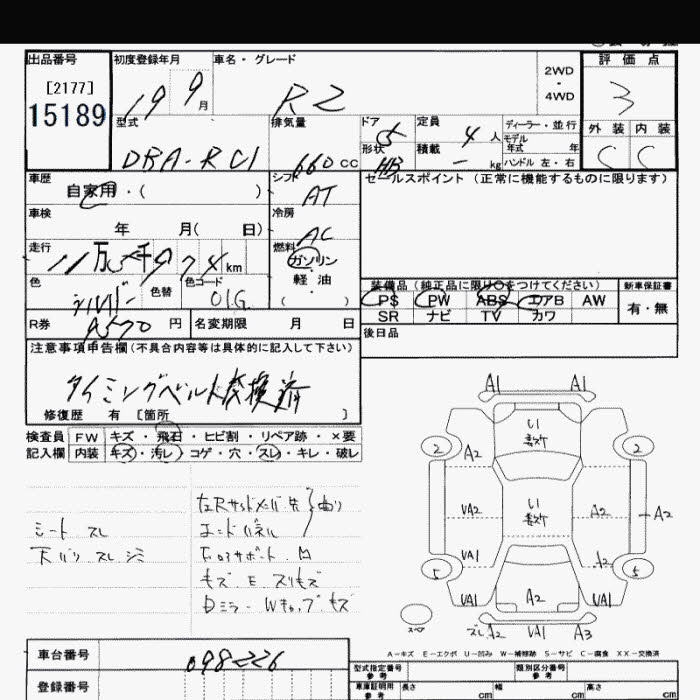 出品番号 初度登録年月 車名・グレード 評価点
[2177]
15189
19 9月 R2 2WD・4WD 3
型式 排気量 ドア 定員 ディーラー・並行 外装 内装
DBA-RC1 660cc 5 4人 モデル年式 年 C C
形状 HB 積載 - kg ハンドル 左・右
車歴 シフト セールスポイント (正常に機能するものに限ります)
自家用・( ) AT
車検 冷房
年 月( 日) AC
走行 燃料
11万5千974km ガソリン
色 色替 色コード 軽・油
シルバー 01G ( )
装備品(純正品に限り○をつけてください) 新車保証書
PS PW ABS エアB AW 有・無
SR ナビ TV カワ
R券 9570円 名変期限 月 日 後日品
注意事項申告欄(不具合内容等は具体的に記入して下さい)
タイミングベルト交換済
修復歴 有 [箇所 ]
検査員 FW キズ・飛石・ヒビ割・リペア跡・×要
記入欄 内装 キズ・汚レ・コゲ・穴・スレ・キレ・破レ
シート スレ
キズ・E スリキズ
A1 A1
2 A2 2
VA2 A2 A2
VA1 A2
5 5
VA1 A2 VA1
ズレA2 VA1 A3
スペア
A-キズ E-エクボ U-凹み W-補修跡 S-サビ C-腐食 XX-交換済
車台番号 098226
登録番号
型式指定番号 参考 類別区分番号 参考
車庫証明用 参考 長さ cm 幅 cm 高さ cm